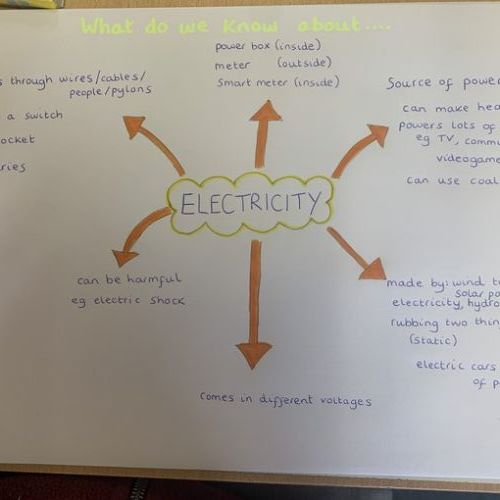 What do we know about....
power box (inside)
meter (outside)
Smart meter (inside)
s through wires/cables/
people/pylons
a switch
ocket
ries
Source of power
can make hea
powers lots of
eg TV, commu
videogame
can use coal
ELECTRICITY
can be harmful
eg electric shock
made by: wind t
solar po
electricity, hydro
rubbing two thin
(static)
electric cars
of p
comes in different voltages